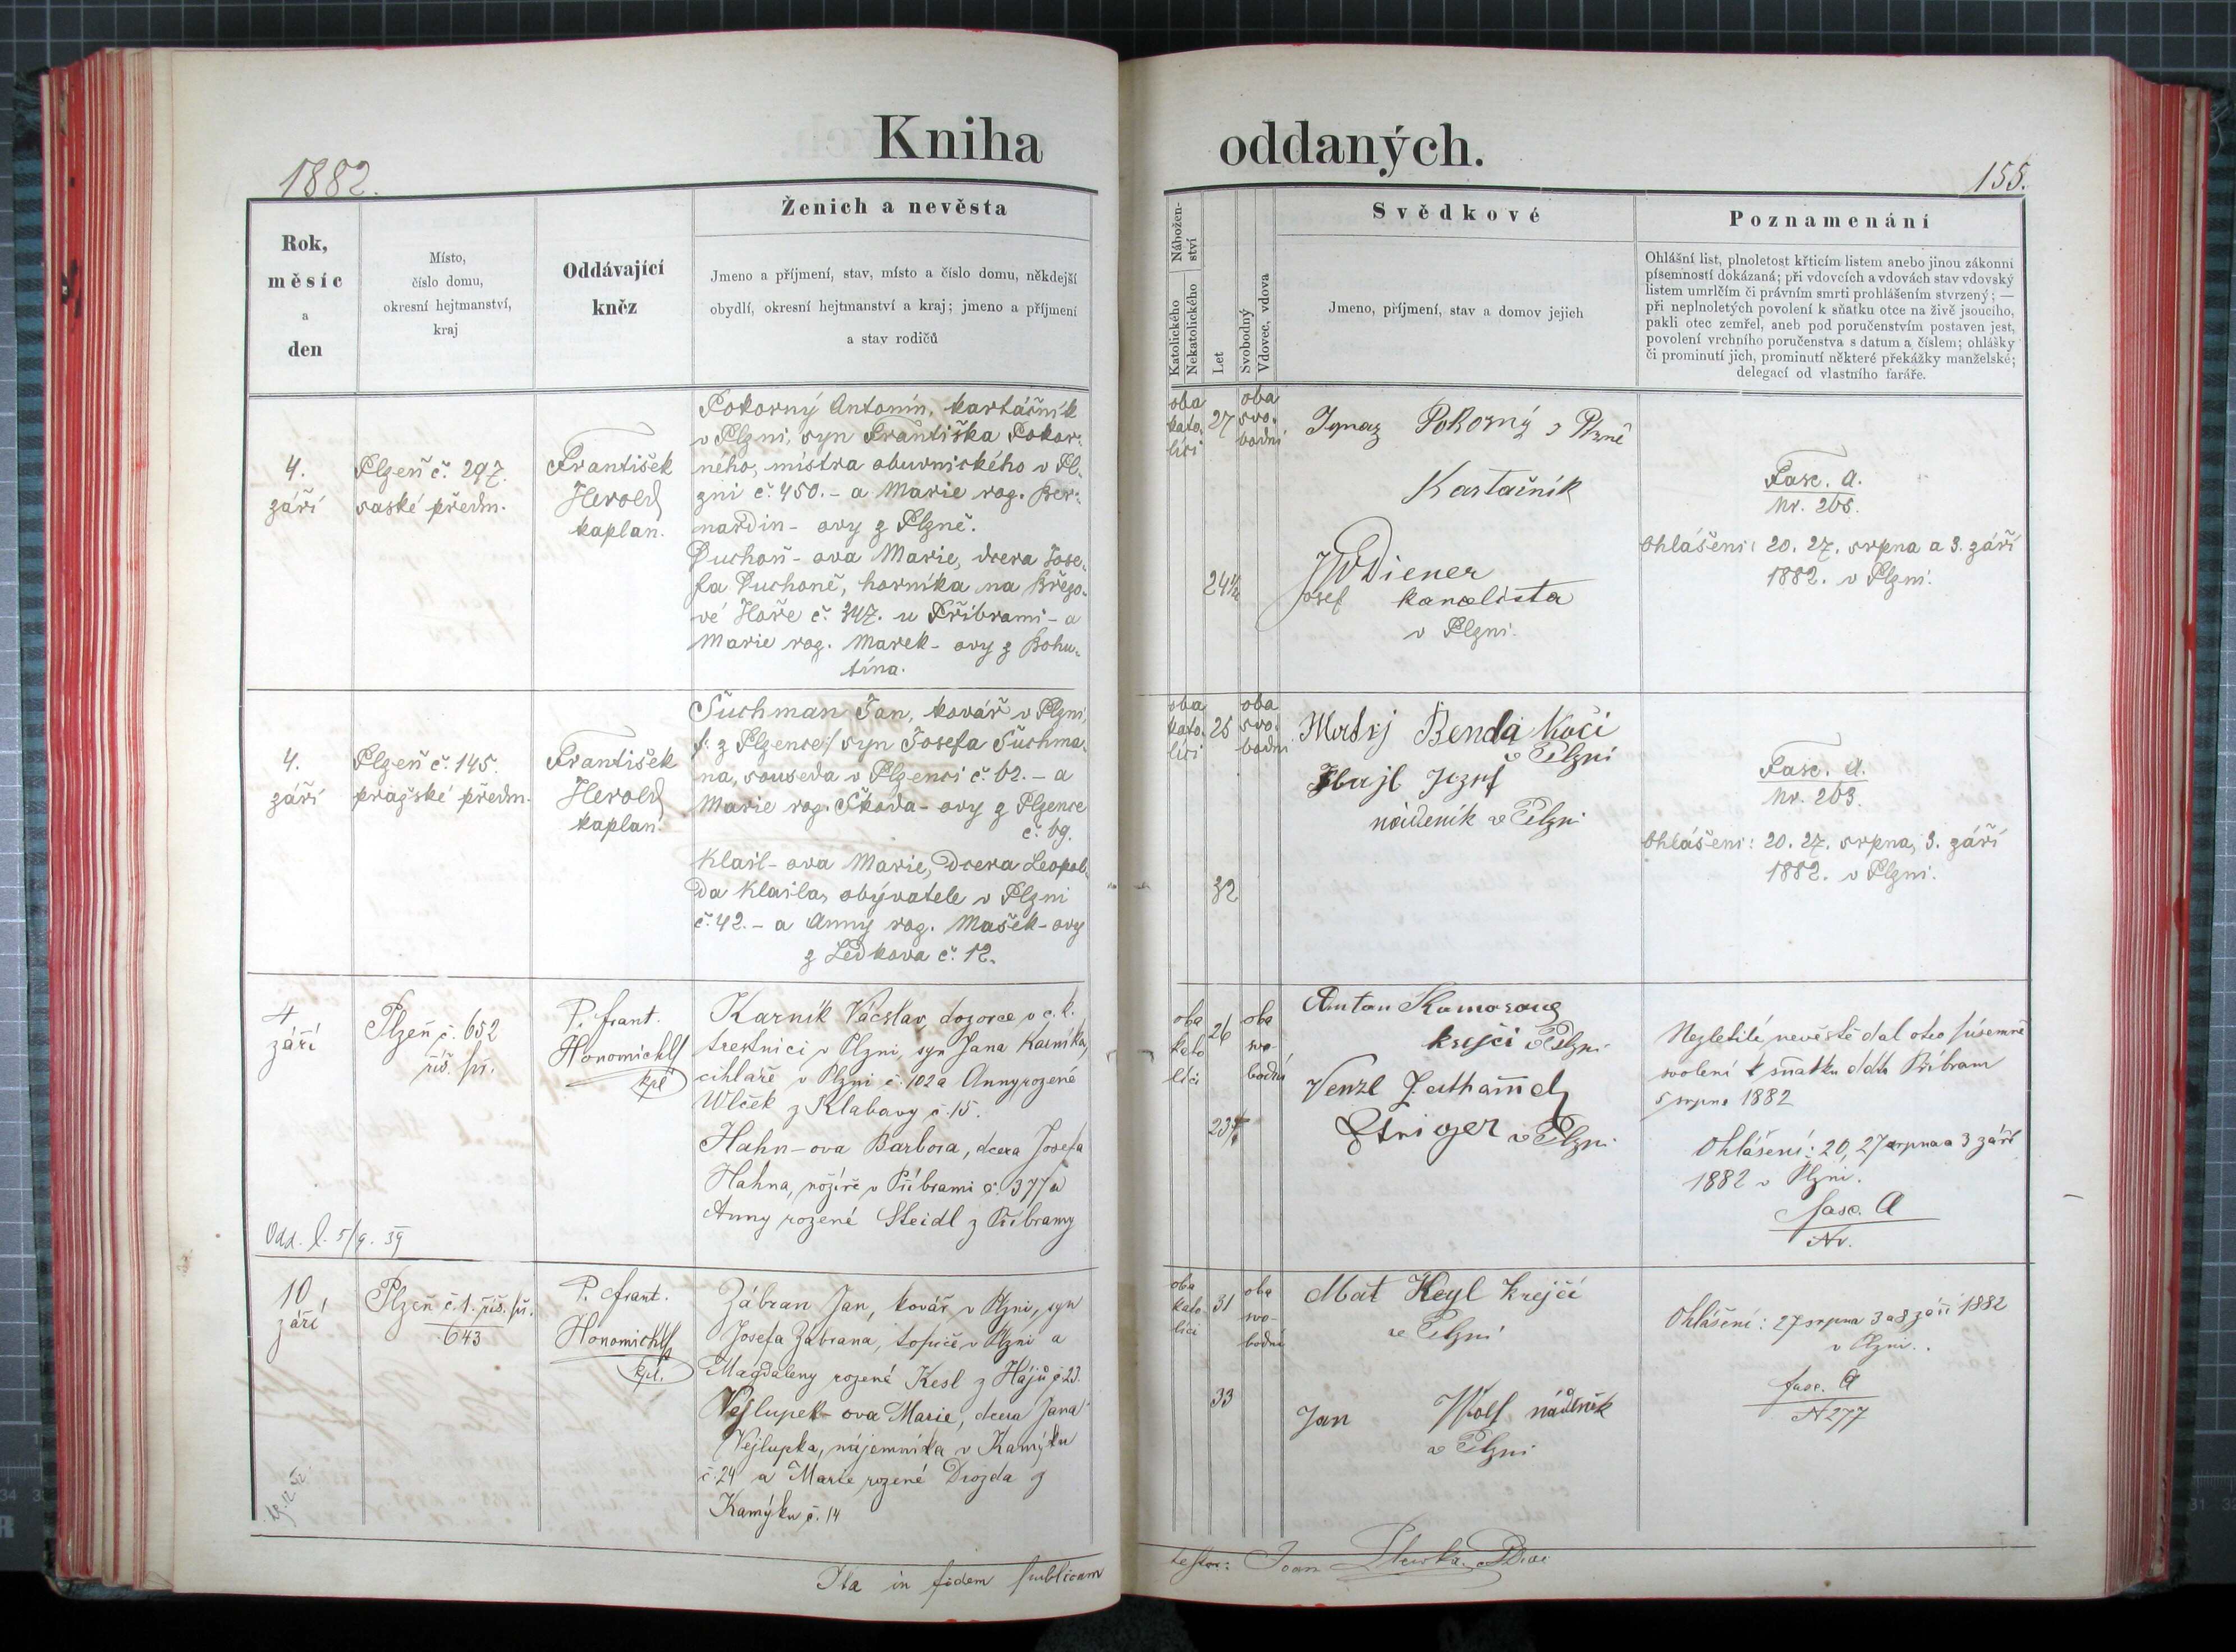 Kniha oddaných.
1882.
155.
Rok,
měsíc
a
den
Místo,
číslo domu,
okresní hejtmanství,
kraj
Oddávající
kněz
Ženich a nevěsta
Jmeno a příjmení, stav, místo a číslo domu, někdejší
obydlí, okresní hejtmanství a kraj; jmeno a příjmení
a stav rodičů
Nábožen-
ství
Katolického
Nekatolického
Let
Svobodný
Vdovec, vdova
Svědkové
Jmeno, příjmení, stav a domov jejich
Poznamenání
Ohlášní list, plnoletost křticím listem anebo jinou zákonní
písemností dokázaná; při vdovcích a vdovách stav vdovský
listem umrlčím či právním smrti prohlášením stvrzený; —
při neplnoletých povolení k sňatku otce na živě jsoucího,
pakli otec zemřel, aneb pod poručenstvím postaven jest,
povolení vrchního poručenstva s datum a číslem; ohlášky
či prominutí jich, prominutí některé překážky manželské;
delegací od vlastního faráře.
4.
září
Plzeň č. 297.
saské předm.
František
Herold
kaplan.
Pokorný Antonín, kartáčník
v Plzni, syn Františka Pokor-
ného, mistra obuvnického v Pl-
zni č. 450. - a Marie roz. Ber-
nardin - ovy z Plzně.
Duchoň - ova Marie, dcera Jose-
fa Duchoně, horníka na Březo-
vé Hoře č. 347. u Příbrami - a
Marie roz. Marek - ovy z Bohu-
tína.
oba
kato-
líci
27
24½
oba
svo-
bodni
Ignaz Pokorný z Plzně
Kartačnik
Josef Diener
kancelista
v Plzni.
Fasc. A.
Nr. 265.
Ohlášeni: 20. 27. srpna a 3. září
1882. v Plzni.
4.
září
Plzeň č. 145.
pražské předm.
František
Herold
kaplan.
Suchman Jan, kovář v Plzni,
/: z Plzence :/ syn Josefa Suchma-
na, souseda v Plzenci č. 62. - a
Marie roz. Škoda - ovy z Plzence
č. 69.
Klail - ova Marie, dcera Leopol-
da Klaila, obývatele v Plzni
č. 42. - a Anny roz. Mašek - ovy
z Ledkova č. 12.
oba
kato-
líci
25
32
oba
svo-
bodni
Matěj Benda Kočí
v Plzni
nádeník v Plzni
Fasc. A.
Nr. 263.
Ohlášeni: 20. 27. srpna, 3. září
1882. v Plzni.
4
září
Plzeň č. 652
říš. př.
P. Frant.
Honomichl
kpl
Karník Václav, dozorce v c. k.
trestnici v Plzni, syn Jana Karníka,
cihláře v Plzni č. 102 a Anny rozené
Wlček z Klabavy č. 15.
Hahn - ova Barbora, dcera Josefa
Hahna, nožíře v Příbrami č. 377 a
Anny rozené Steidl z Příbramy
Odd. l. 5/9. 39
oba
kato
líci
26
oba
svo-
bodni
Anton
krejčí v Plzni
Venzl
v Plzni
Nezletilé nevěstě dal otec písemné
svolení k sňatku ddto Příbram
5 srpna 1882
Ohlášení: 20, 27 srpna a 3 září
1882 v Plzni.
fasc. A
Nr.
10
září
Plzeň č. 1. říš. př.
643
P. Frant.
Honomichl
kpl.
Zábran Jan, kovář v Plzni, syn
Josefa Zábrana, topiče v Plzni a
Magdaleny rozené Kesl z Hájů č 23.
Vejlupek - ova Marie, dcera Jana
Vejlupka, nájemníka v Kamýku
č. 24 a Marie rozené Drozda z
Kamýku č. 14
oba
kato
líci
31
33
oba
svo-
bodni
Mat Heyl Krejčí
v Plzni
Jan Wolf nádeník
v Plzni
Ohlášení: 27 srpna 3 a 8 září 1882
v Plzni.
fasc. A
N 277
Ita in fidem publicam
testor: Joan